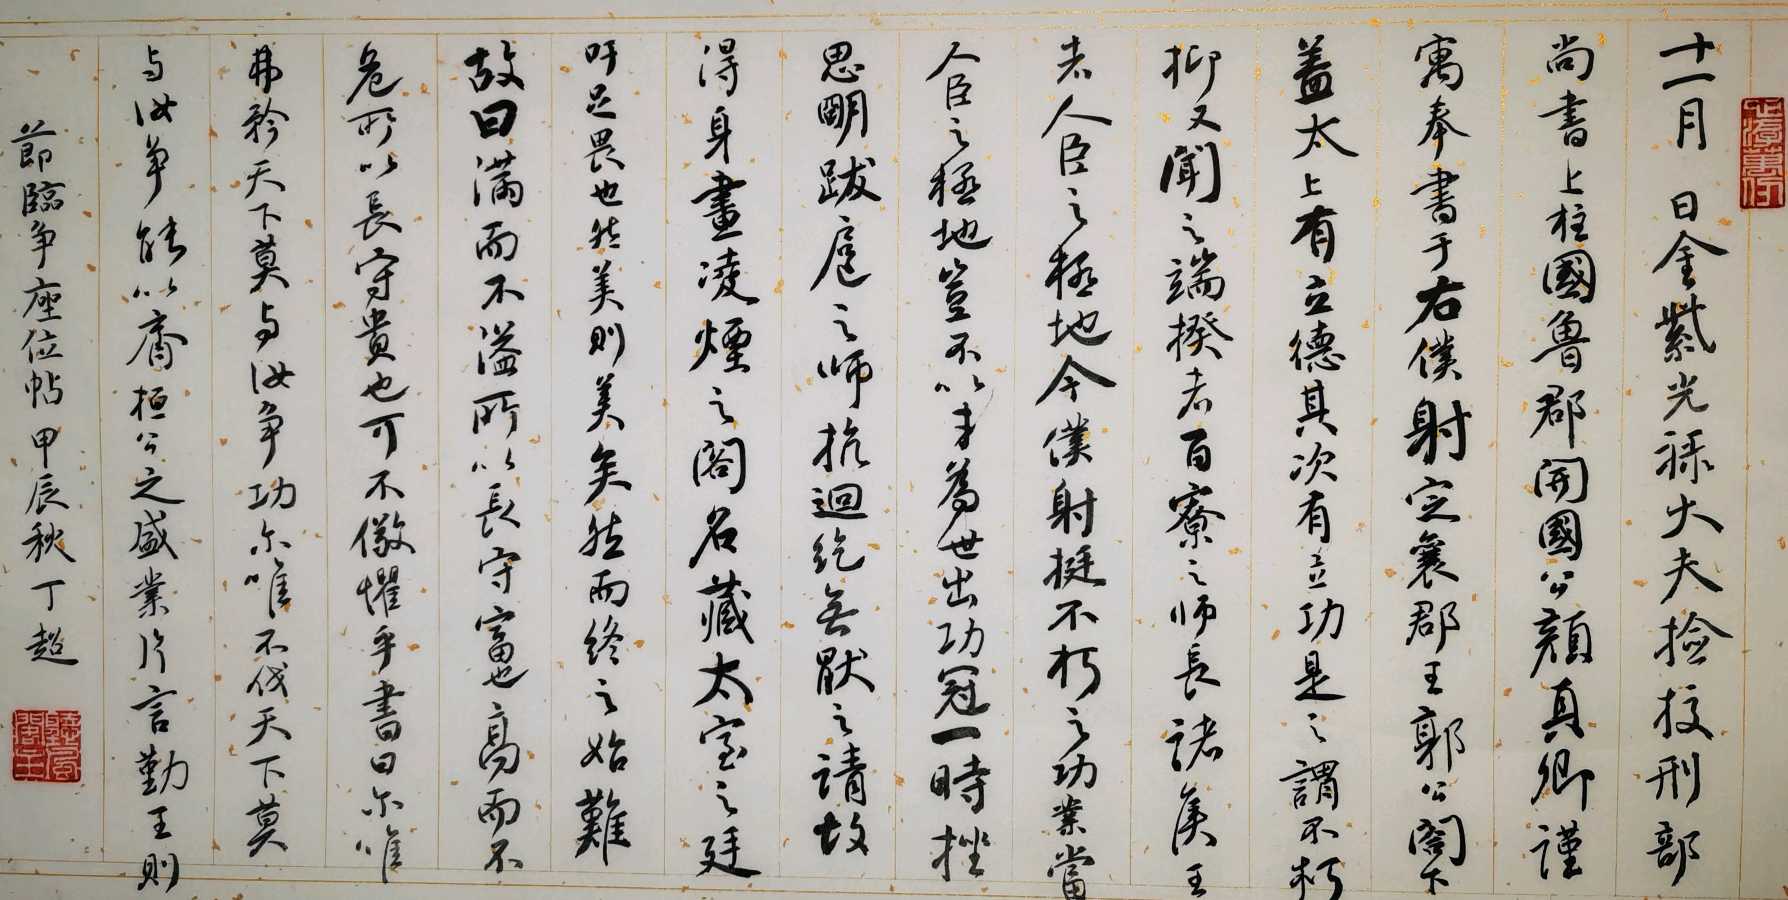 十一月　日金紫光祿大夫撿挍刑部
尚書上柱國魯郡開國公顏真卿謹
寓奉書于右僕射定襄郡王郭公閣下
蓋太上有立德其次有立功是之謂不朽
抑又聞之端揆者百寮之師長諸侯王
者人臣之極地今僕射挺不朽之功業當
人臣之極地豈不以才為世出功冠一時挫
思明跋扈之師抗迴紇無猒之請故
得身畫凌煙之閣名藏太室之廷
吁足畏也然美則美矣然而終之始難
故曰滿而不溢所以長守富也高而不
危所以長守貴也可不儆懼乎書曰尒唯
弗矜天下莫与汝爭功尒唯不伐天下莫
与汝爭能以齊桓公之盛業片言勤王則
節臨爭座位帖甲辰秋丁超